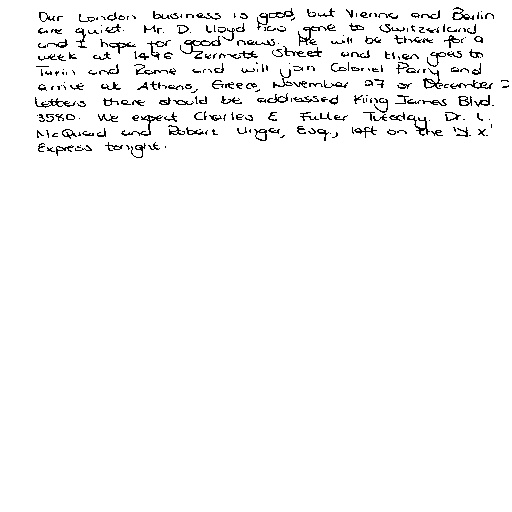 Our London business is good, but Vienna and Berlin
are quiet. Mr. D. Lloyd has gone to Switzerland
and I hope for good news. He will be there for a
week at 1496 Zermott Street and then goes to
Turin and Rome and will join Colonel Parry and
arrive at Athens, Greece, November 27 or December 2
Letters there should be addressed King James Blvd.
3580. We expect Charles E. Fuller Tuesday. Dr. L.
McQuaid and Robert Unger, Esq., left on the 'Y.X.'
Express tonight.